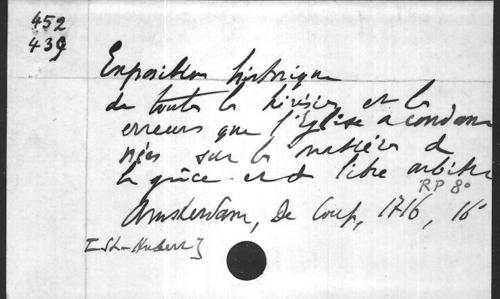 452
439
Exposition historique
de toutes les hérésies et les
erreurs que l'Eglise a condam
nées sur les matières de
la grâce et du libre arbitre
RP 8°
Amsterdam, De Coup, 1716, 16°
[St-Hubert]